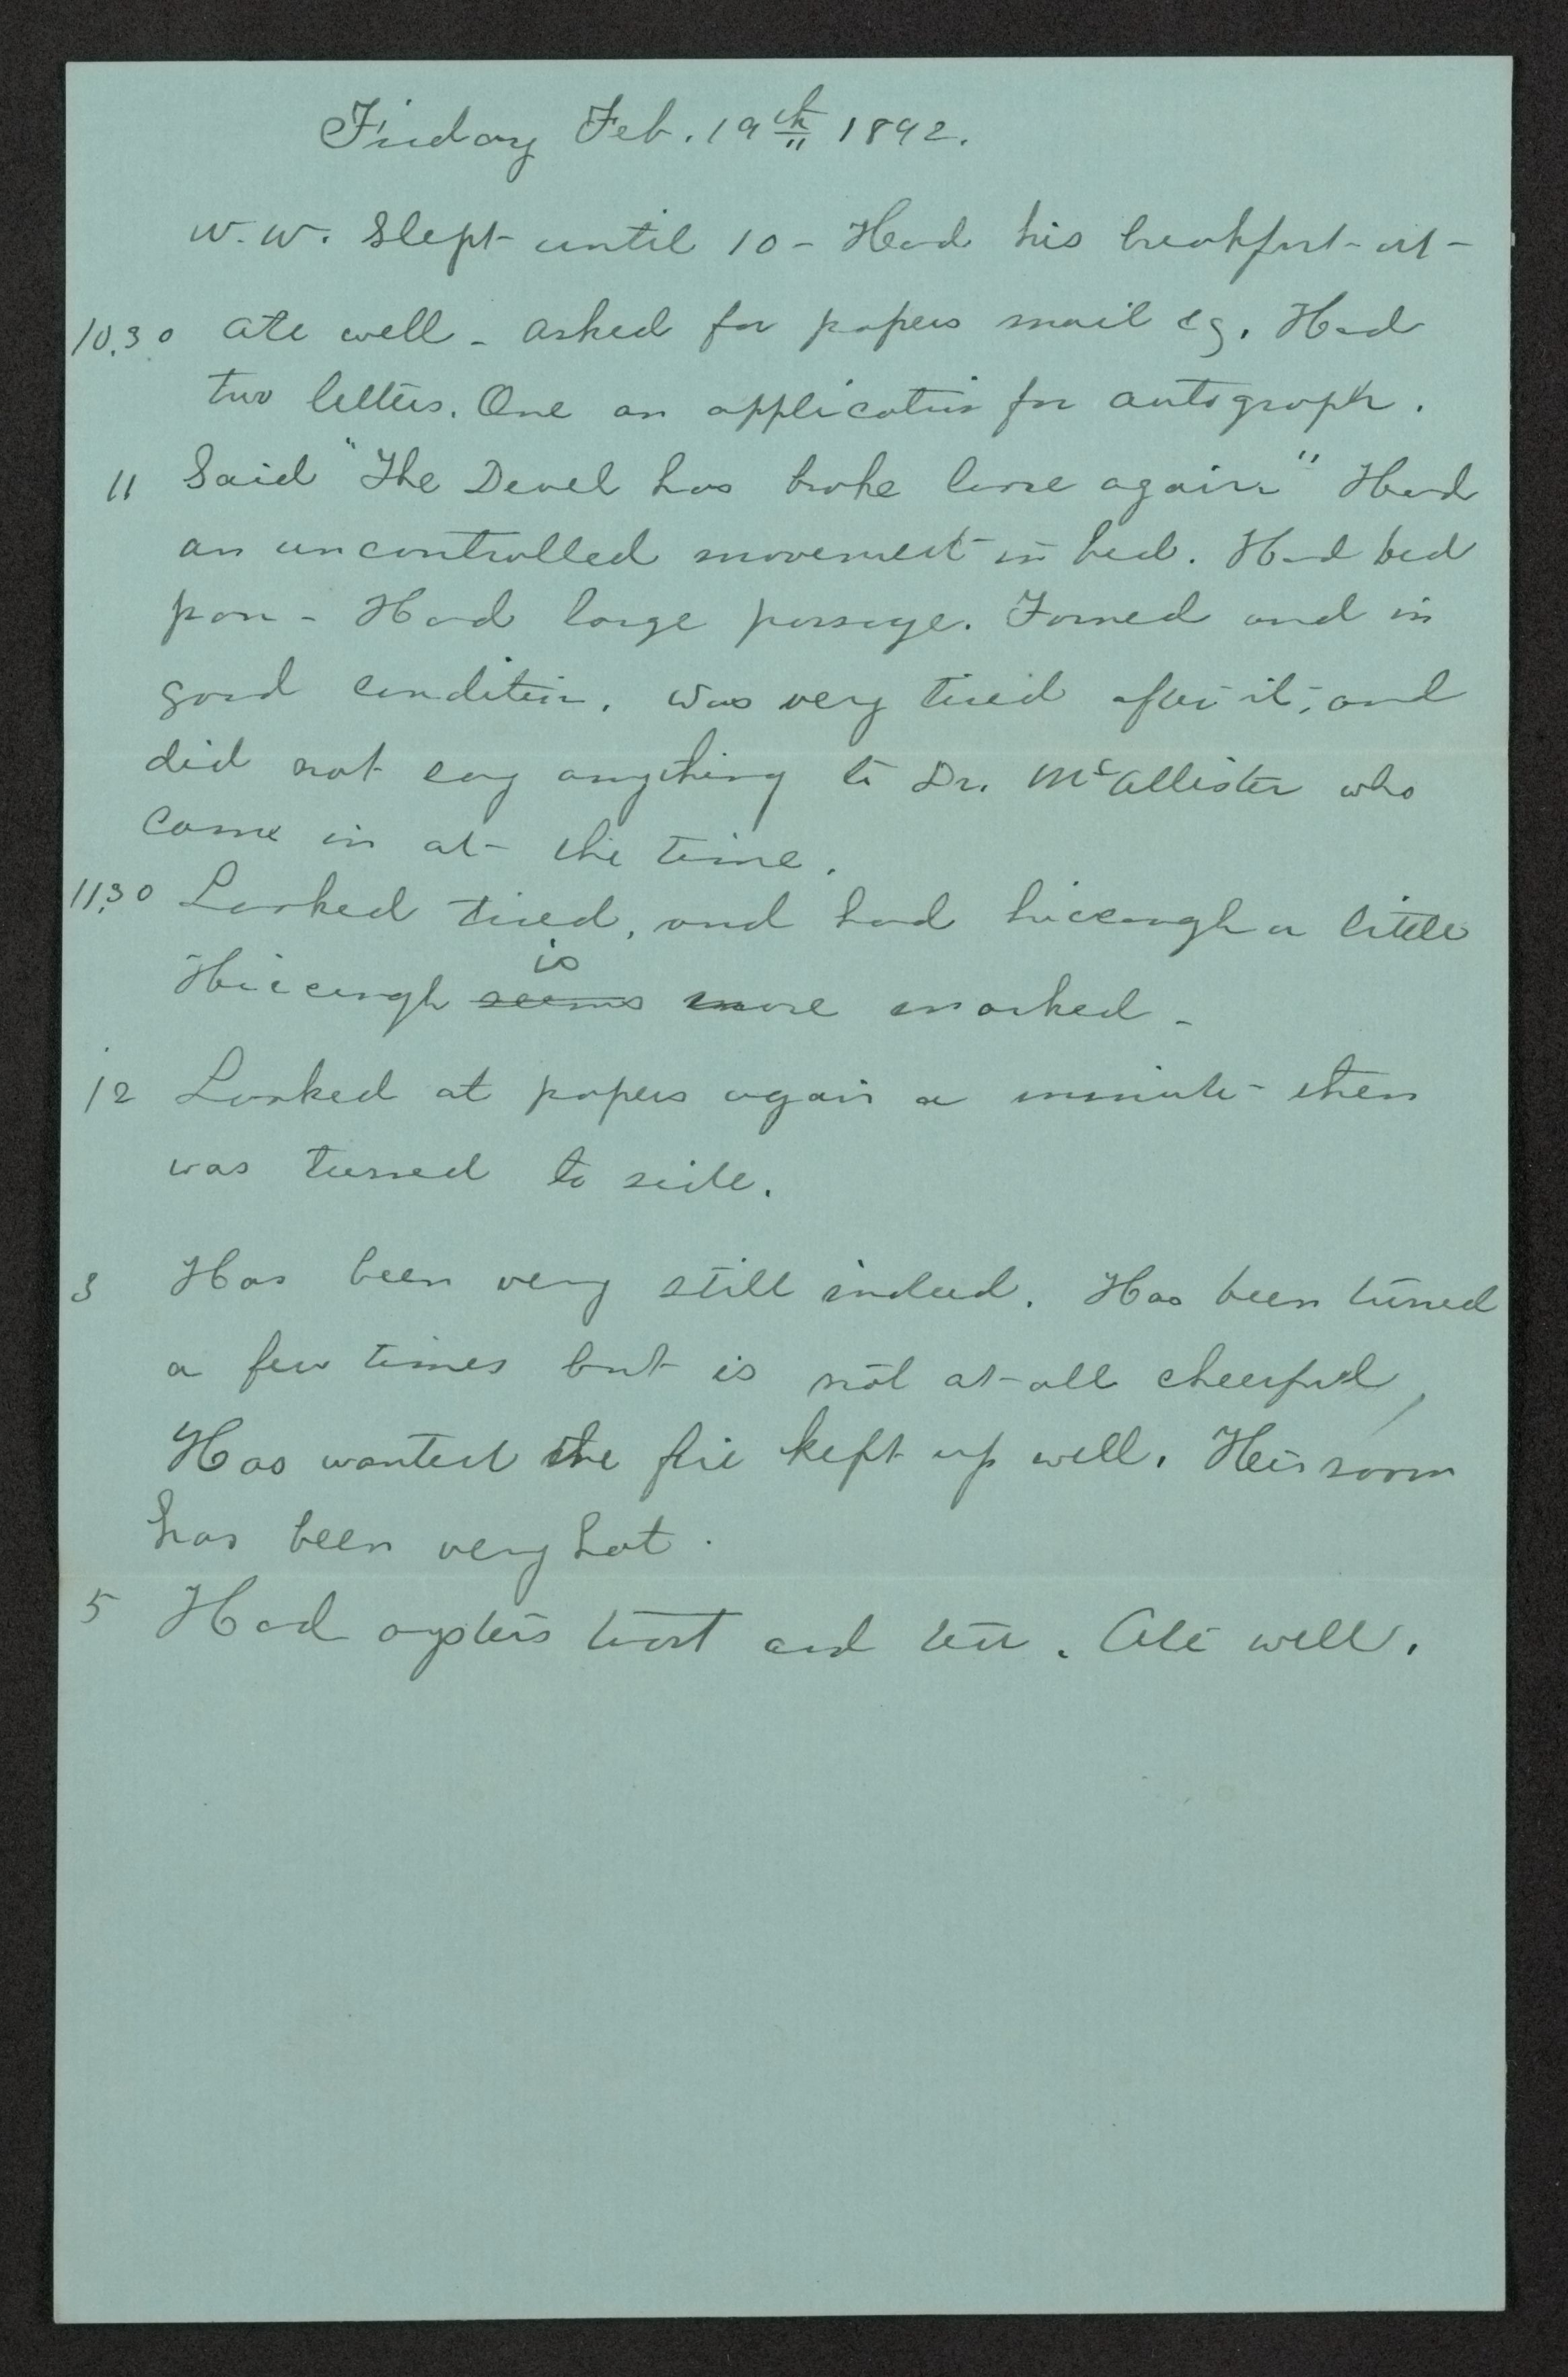 Friday Feb. 19th 1892.
W. W. Slept until 10 - Had his breakfast - at -
10.30 ate well - asked for papers mail eg. Had
two letters. One an application for autograph.
11 Said "The Devel has broke loose again" Had
an uncontrolled movement in bed. Had bed
pan - Had large passage. Formed and in
good condition. Was very tired after it, and
did not say anything to Dr. McAllister who
came in at the time.
11.30 Looked tired, and had hiccough a little
Hiccough ~~seems~~ is more marked -
12 Looked at papers again a minute - then
was turned to side.
3 Has been very still indeed. Has been turned
a few times but is not at all cheerful,
Has wanted the fire kept up well. His room
has been very hot.
5 Had oysters toast and tea. Ate well.